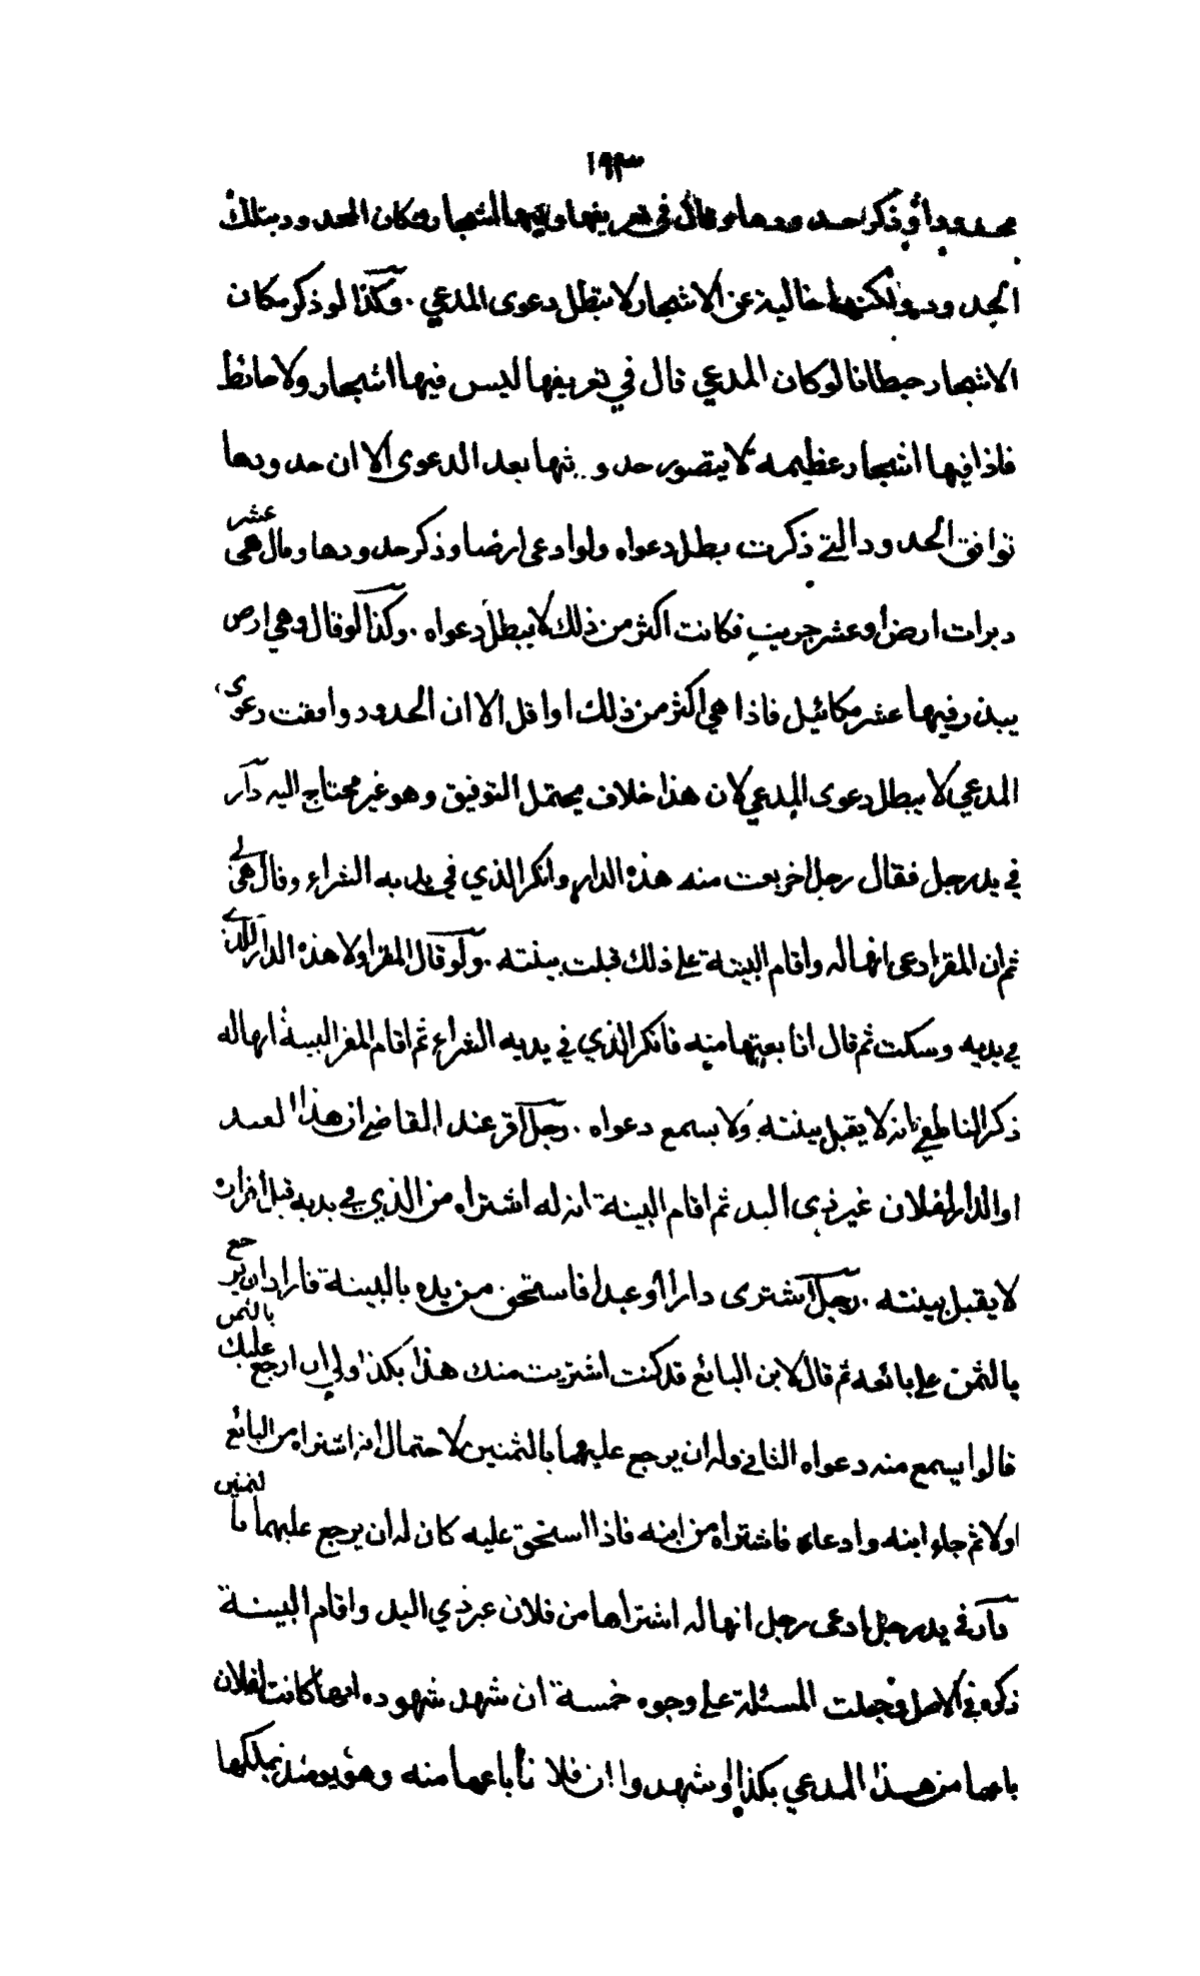 ١٩٣
محدودا وذكر حدودها وقال في تعريفها وفيها اشجار وكان المحدود بتلك
الحدود ولكنها خالية عن الاشجار لا تبطل دعوى المدعي . وكذا لو ذكر مكان
الاشجار حيطانا لو كان المدعي قال في تعريفها ليس فيها اشجار ولا حائط
فاذا فيها اشجار عظيمه لا يتصور حدوثها بعد الدعوى الا ان حدودها
توافق الحدود التي ذكرت بطل دعواه ولو ادعى ارضا وذكر حدودها وقال هي عشر
دبرات ارض او عشر جريب فكانت اكثر من ذلك لا يبطل دعواه . وكذا لو قال وهي ارض
يبذر فيها عشر مكائيل فاذا هي اكثر من ذلك او اقل الا ان الحدود وافقت دعوى
المدعي لا يبطل دعوى المدعي لان هذا خلاف يحتمل التوفيق وهو غير محتاج اليه دار
في يد رجل فقال رجل اخر بعت منه هذه الدار وانكر الذي في يديه الشراء وقال هي لي
ثم ان المقر ادعى انها له واقام البينة على ذلك قبلت بينته . ولو قال المقر اولا هذه الدار للذي
في يديه وسكت ثم قال انا بعتها منه فانكر الذي في يديه الشراء ثم اقام المقر البينة انها له
ذكر الناطفي انه لا يقبل بينته ولا يسمع دعواه . رجل اقر عند القاضي ان هذا العبد
او الدار لفلان غير ذي اليد ثم اقام البينة انه له اشتراه من الذي في يديه قبل اقراره
لا يقبل بينته . رجل اشترى دارا او عبدا فاستحق من يده بالبينة فاراد ان يرجع
بالثمن على بائعه ثم قال لابن البائع قد كنت اشتريت منك هذا بكذا ولي ان ارجع عليك بالثمن
قالوا يسمع منه دعواه الثاني وله ان يرجع عليهما بالثمنين لاحتمال انه اشتراه من البائع
اولا ثم جاء ابنه وادعاه فاشتراه من ابنه فاذا استحق عليه كان له ان يرجع عليهما بالثمنين
دار في يد رجل ادعى رجل انها له اشتراها من فلان غير ذي اليد واقام البينة
ذكره في الاصل وجعلت المسئلة على وجوه خمسة ان شهد شهوده انها كانت لفلان
باعها من هذا المدعي بكذا او شهدوا ان فلانا باعها منه وهو يومئذ يملكها